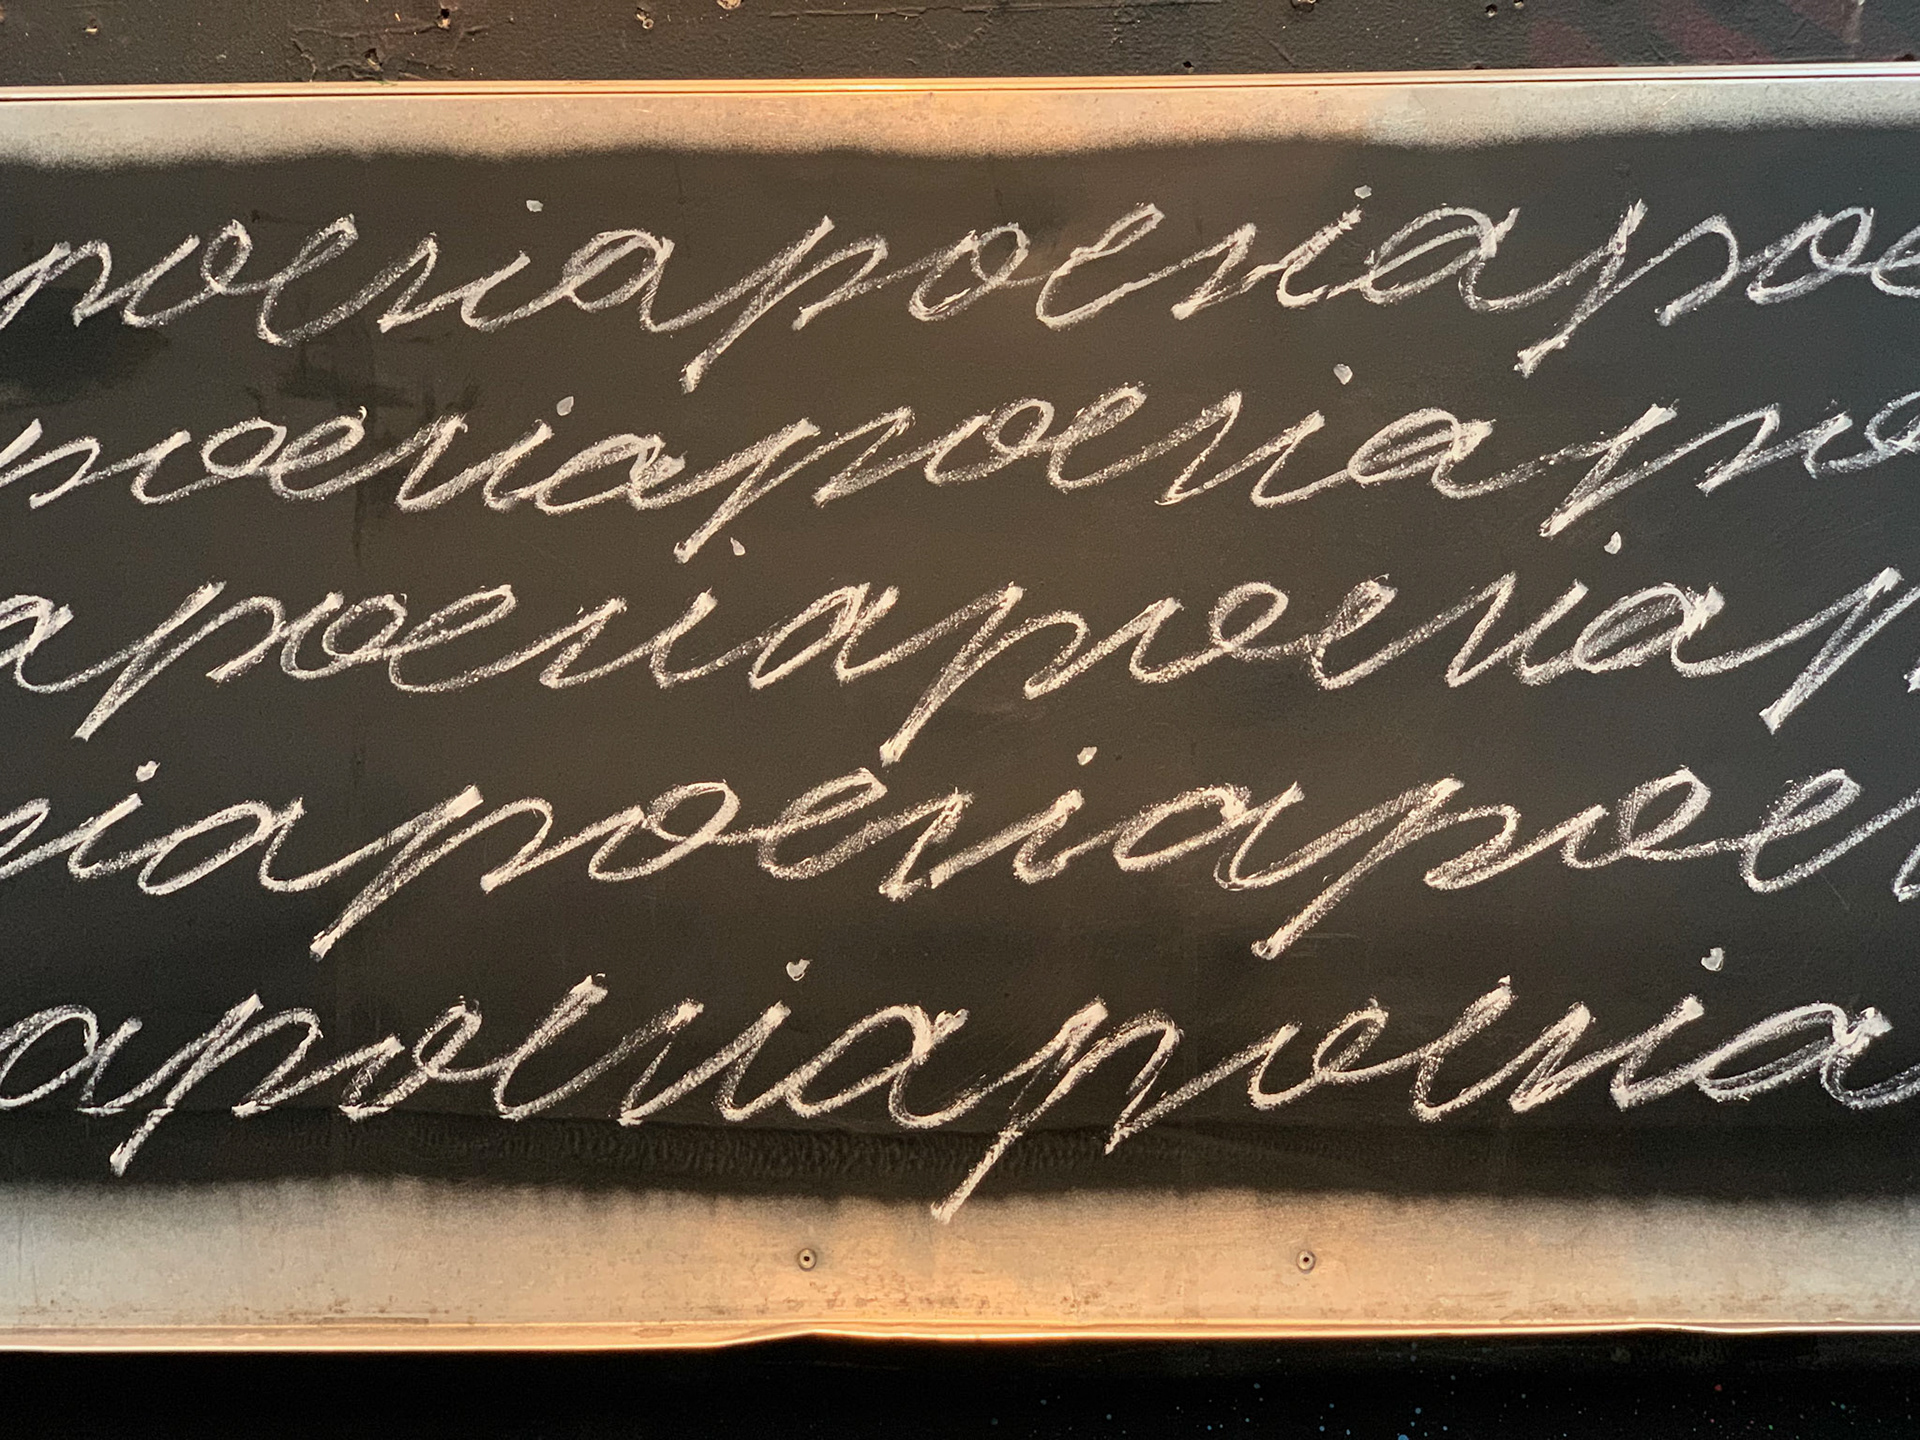 poesiapoesiapoe
poesiapoesiapo
apoesiapoesiap
siapoesiapoes
apoesiapoesia